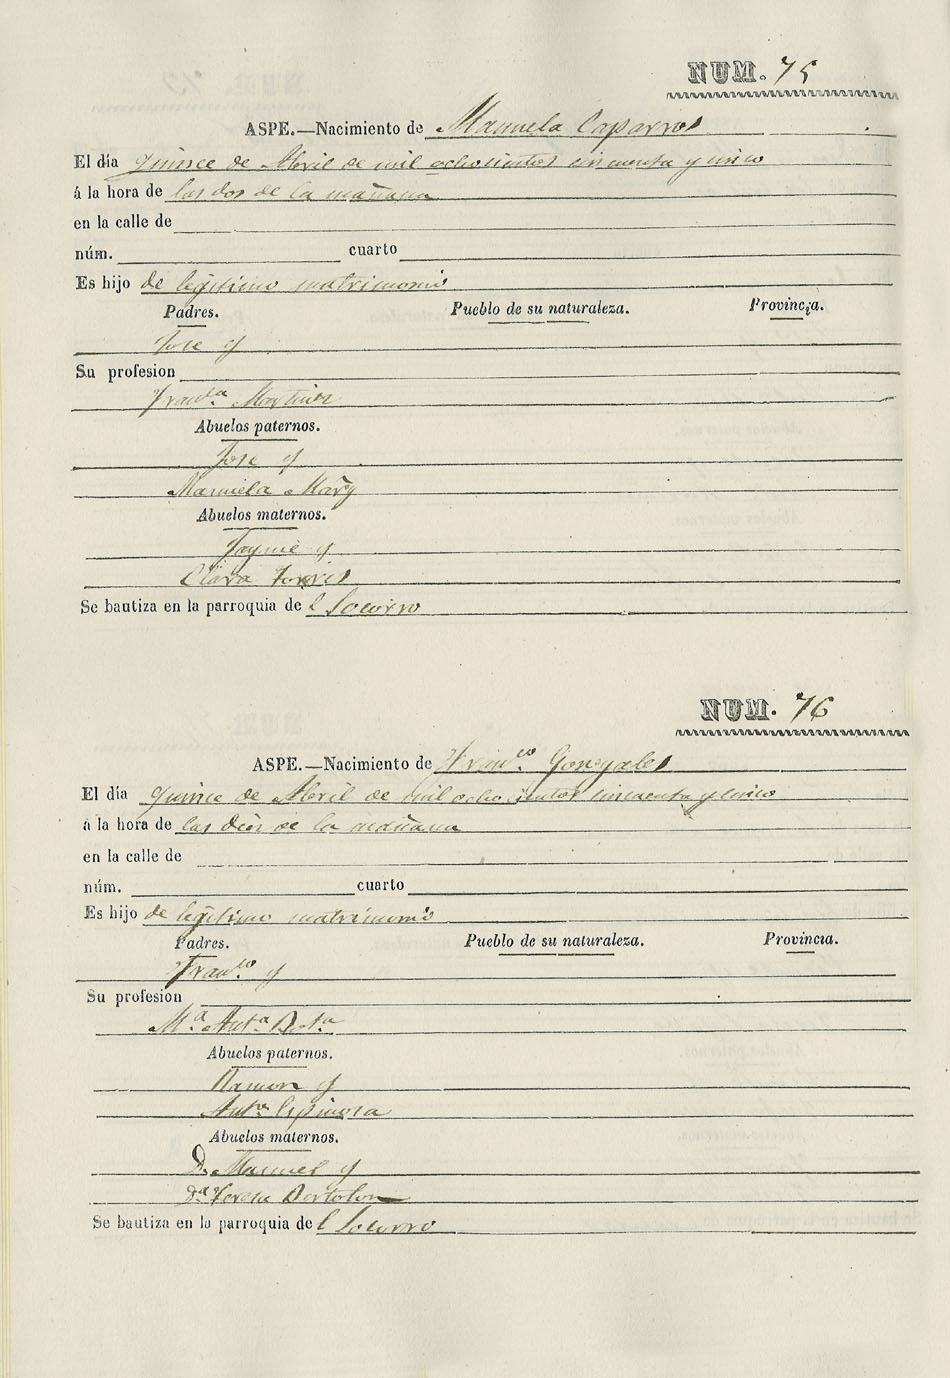 NUM. 75
ASPE.—Nacimiento de Manuela Caparros
El día quince de Abril de mil ochosientos cincuenta y unico
á la hora de las dos de la mañana
en la calle de
núm. cuarto
Es hijo de legitimo matrimonio
Padres. Pueblo de su naturaleza. Provincia.
Jose y
Su profesion
Franca. Martinez
Abuelos paternos.
Jose y
Manuela
Abuelos maternos.
Jayme y
Clara Torres
Se bautiza en la parroquia de l Socorro
NUM. 76
ASPE.—Nacimiento de Franco. Gonzales
El día quince de Abril de mil ochosientos cincuenta y unico
á la hora de las dies de la mañana
en la calle de
núm. cuarto
Es hijo de legitimo matrimonio
Padres. Pueblo de su naturaleza. Provincia.
Franco. y
Su profesion
Ma. Anta.
Abuelos paternos.
Ramon y
Anta. Espinosa
Abuelos maternos.
Dn. Manuel y
Da. Teresa
Se bautiza en la parroquia de l Socorro